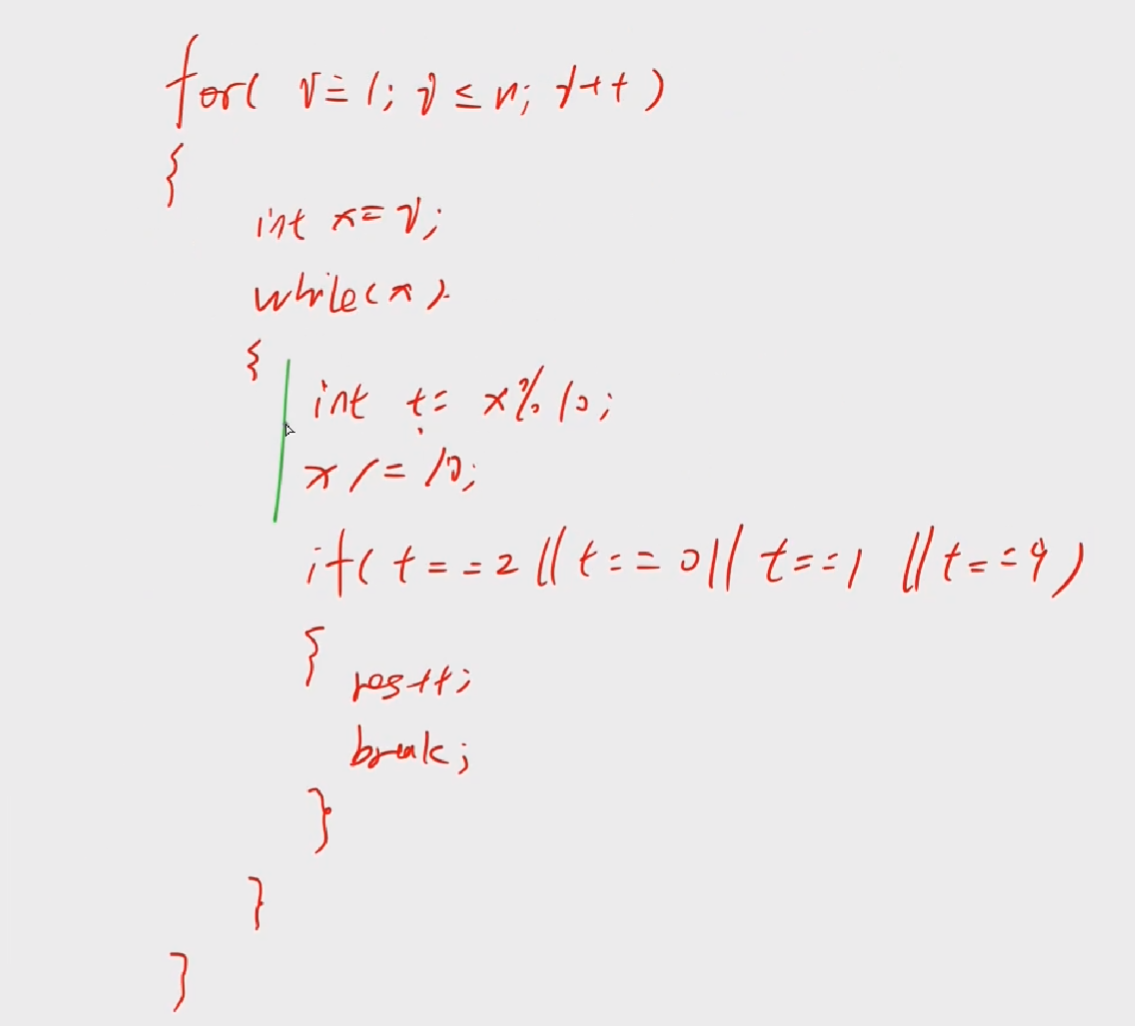 for( i=1; i≤n; i++)
{
int x=i;
while(x)
{
int t= x%10;
x/=10;
if( t==2||t==0||t==1 ||t==9)
{
res++;
break;
}
}
}